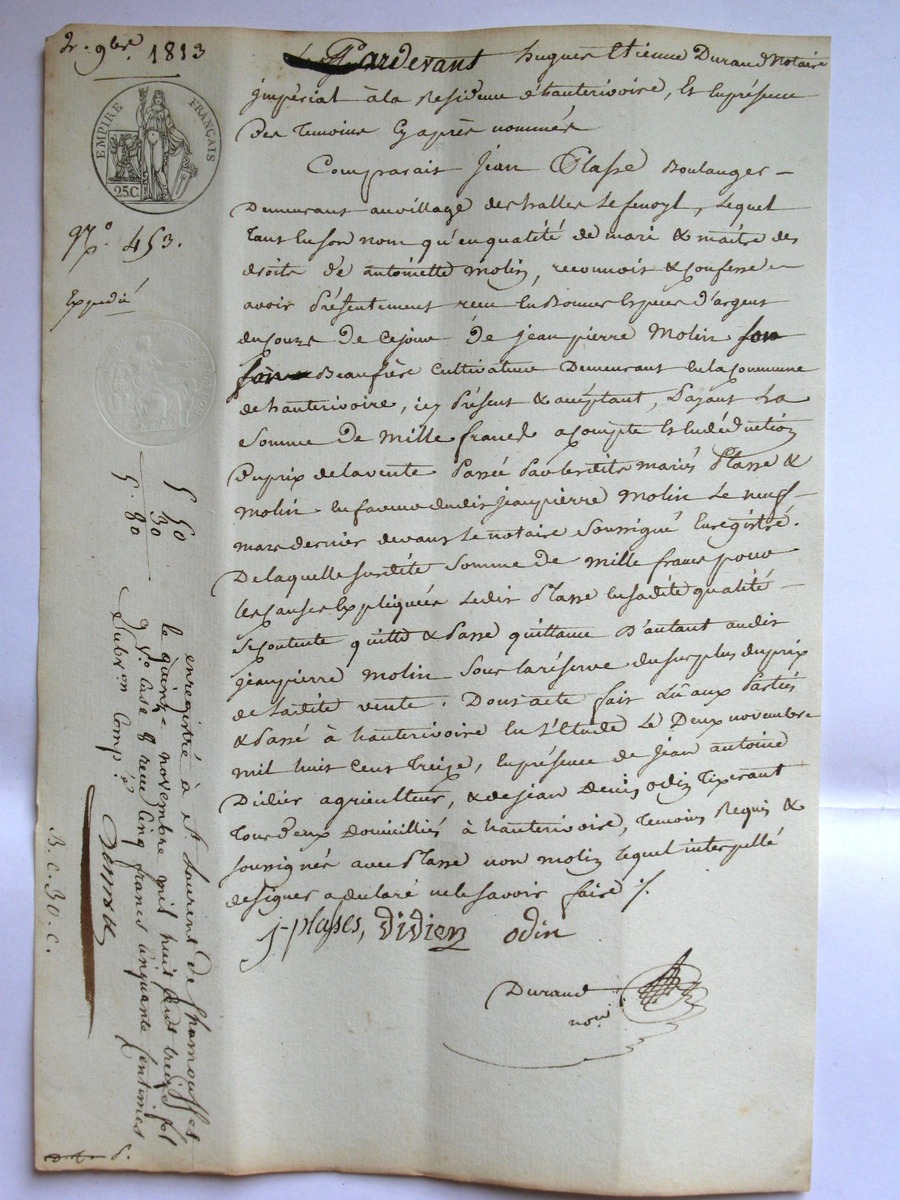 2. 9bre. 1813
EMPIRE FRANÇAIS
25.C.
No. 453.
Expedié
Pardevant hugues Etienne Durand Notaire
jmpérial à la Residence d'hauterivoire, Et En présence
Des temoins Cy après nommés
Comparait jean Plasse Boulanger
Demeurant au village des halles Le fenoyl, Lequel
tant En son nom qu'en qualité de mari & maitre des
droits de antoinette Molin, reconnoit & Confesse
avoir Présentement recu En Bonnes Especes d'argent
du cours de Ce jour de jean pierre Molin son
son Beaufrère Cultivateur Demeurant En la Commune
de hauterivoire, icy Présent & acceptant, Layant La
Somme de Mille francs acompte Et En déduction
Du prix de la vente Passée Par Lesdits mariés Plasse &
Molin En faveur dudit jean pierre Molin Le neuf
mars dernier devant Le notaire Soussigné Enregistré.
De laquelle susdite Somme de mille francs pour
les Causes Expliquées Ledit Plasse En sadite qualité
Se Contente quitte & Passe quittance D'autant audit
jean pierre Molin Sous La réserve du surplus du prix
de Ladite vente. Dont acte fait Lû aux Parties
& Passé à hauterivoire En L'Etude Le Deux novembre
mil huit Cent treize, En présence de jean antoine
Didier agriculteur, & de jean Denis odin Tixerant
tous Deux Domiciliés à hauterivoire, temoins Requis &
soussignés avec Plasse non molin Lequel interpellé
de signer a declaré ne le savoir faire ./.
j-plasses, didier odin
Durand
nore
5 50
30
5. 80
enregistré à St Laurent de Chamousset
le quinze novembre mil huit cent treize fol
9 Vo Case 8 recu Cinq francs Cinquante Centimes
Subvon Comp.
B. C. 30. C.